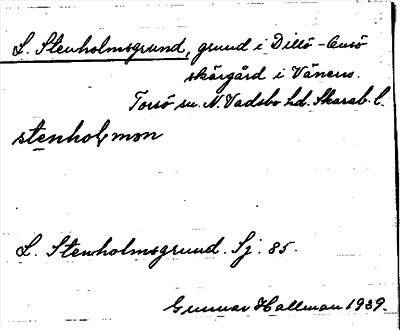 L. Stenholmsgrund, grund i Dillö-Onsö
skärgård i Vänern.
Torsö sn. N. Vadsbo hd. Skarab. l.
stenholmən
L. Stenholmsgrund. Sj. 85.
Gunnar Hallman 1939.